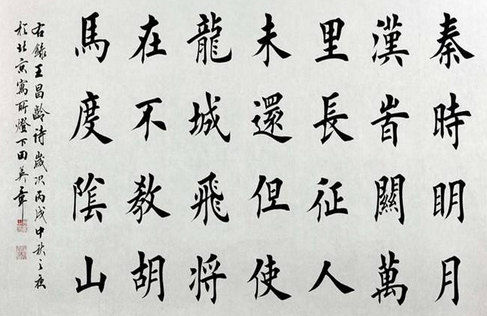 秦時明月
漢旹關萬
里長征人
未還但使
龍城飛将
在不教胡
馬度陰山
右錄王昌齡詩歲次丙戌中秋之夜
於北京寓所燈下田英章